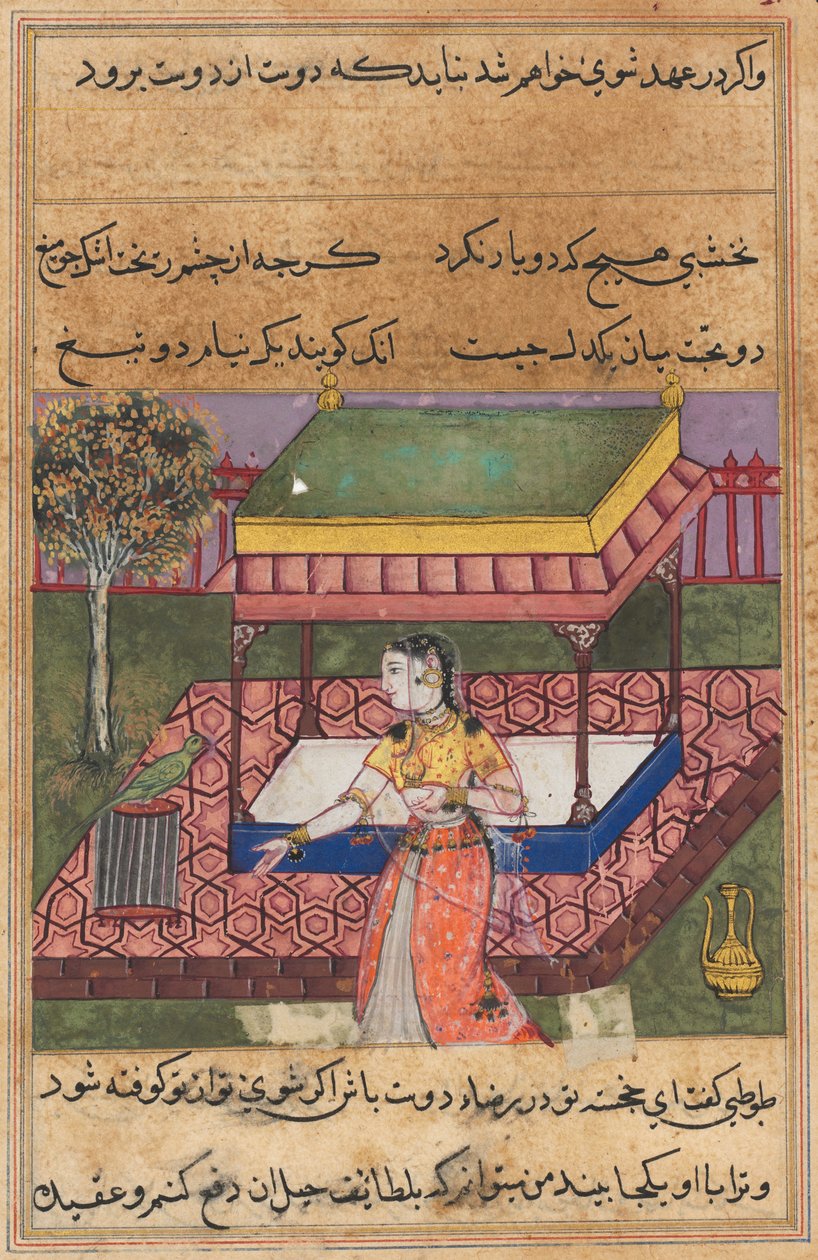 واکر در عهد شوي خواهم شد نباید که دوست از دوست برود
نخشبي هیچ که دو یار نکرد کرچه از چشم ریخت اشک چو میغ
دو محبّت میان یکدل چیست انک کویند یک نیام دو تیغ
طوطي کفت اي خجسته تو در رضاء دوست باش اکر شوي تو از تو کوفته شود
و ترا با او یکجا بیند من میتوانم که بلطائف حیل ان دفع کنم و عقیدهٔ